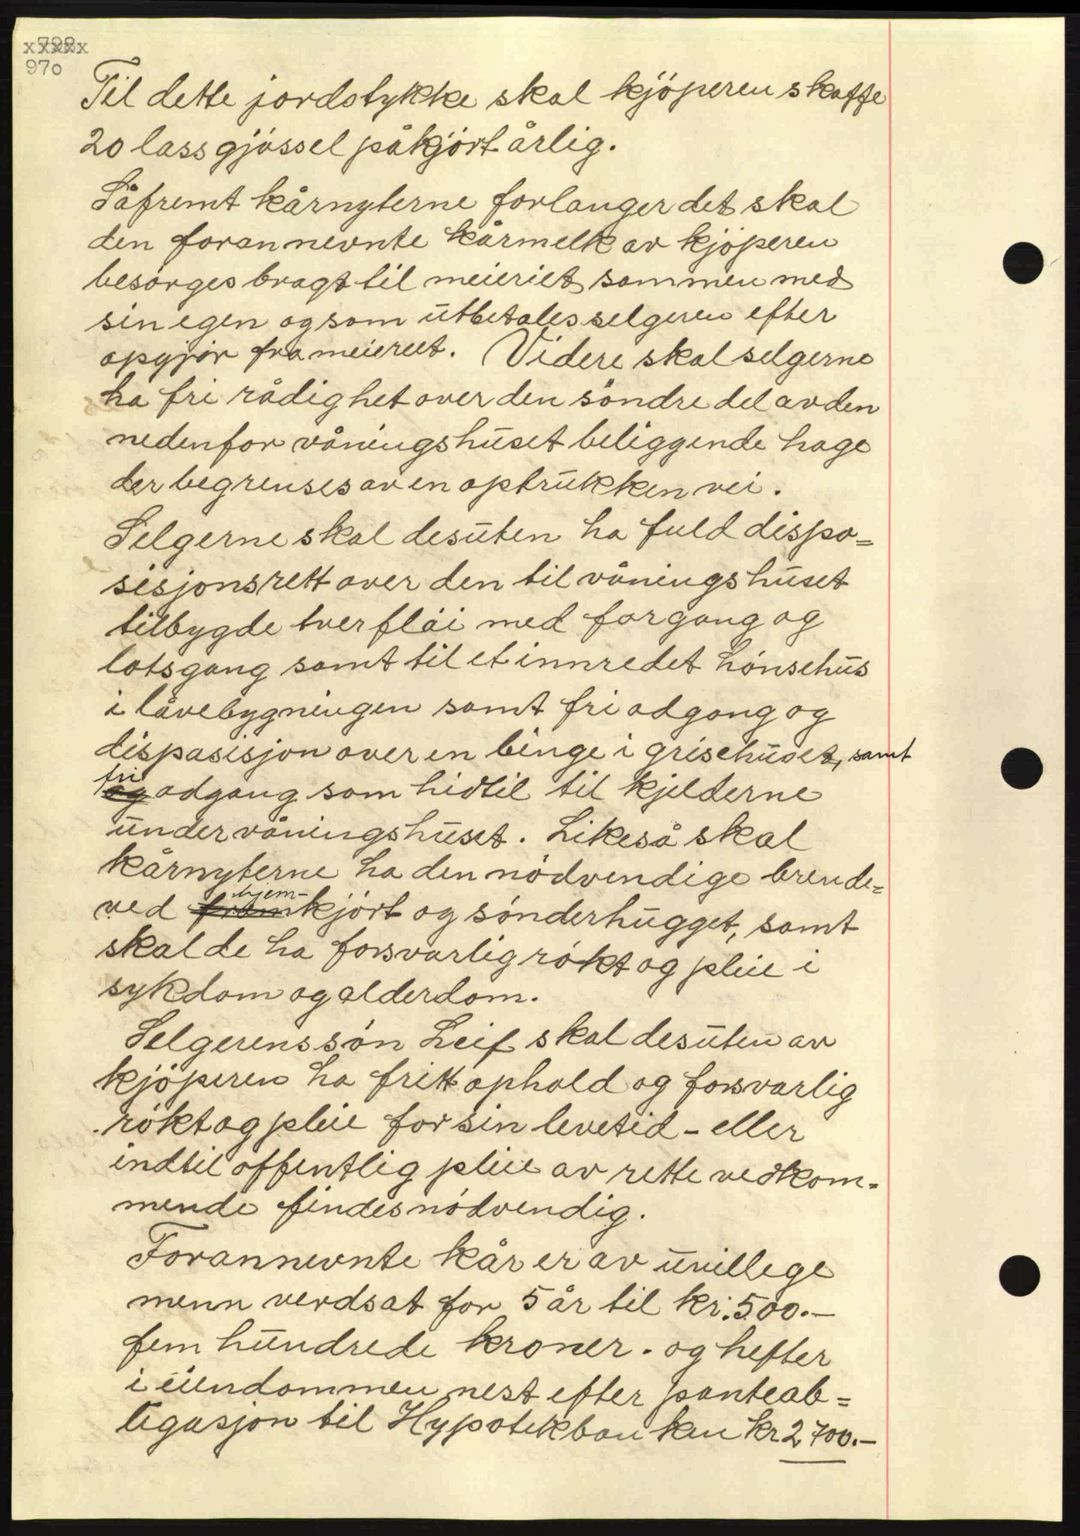 798
xxxxx
970
Til dette jordstykke skal kjöperen skaffe
20 lass gjössel påkjört årlig.
Såfremt kårnyterne forlanger det skal
den forannevnte kårmelk av kjöperen
besörges bragt til meieriet sammen med
sin egen og som utbetales selgeren efter
opgjör fra meieriet. Videre skal selgerne
ha fri rådighet over den söndre del av den
nedenfor våningshuset beliggende hage
der begrenses av en optrukken vei.
Selgerne skal desuten ha fuld dispo=
sisjonsrett over den til våningshuset
tilbygde tverflöi med forgang og
lotsgang samt til et innredet hönsehus
i låvebygningen samt fri adgang og
disposisjon over en binge i grisehuset, samt
fri
og adgang som hidtil til kjelderne
under våningshuset. Likeså skal
kårnyterne ha den nödvendige brende=
hjem-
ved fremkjört og sönderhugget, samt
skal de ha forsvarlig rökt og pleie i
sykdom og alderdom.
Selgerens sön Leif skal desuten av
kjöperen ha fritt ophold og forsvarlig
rökt og pleie for sin levetid - eller
indtil offentlig pleie av rette vedkom-
mende findes nödvendig.
Forannevnte kår er av uvillege
menn verdsat for 5 år til kr. 500.-
fem hundrede kroner. og hefter
i eiendommen nest efter panteob=
ligasjon til Hypotekbanken kr 2700.-